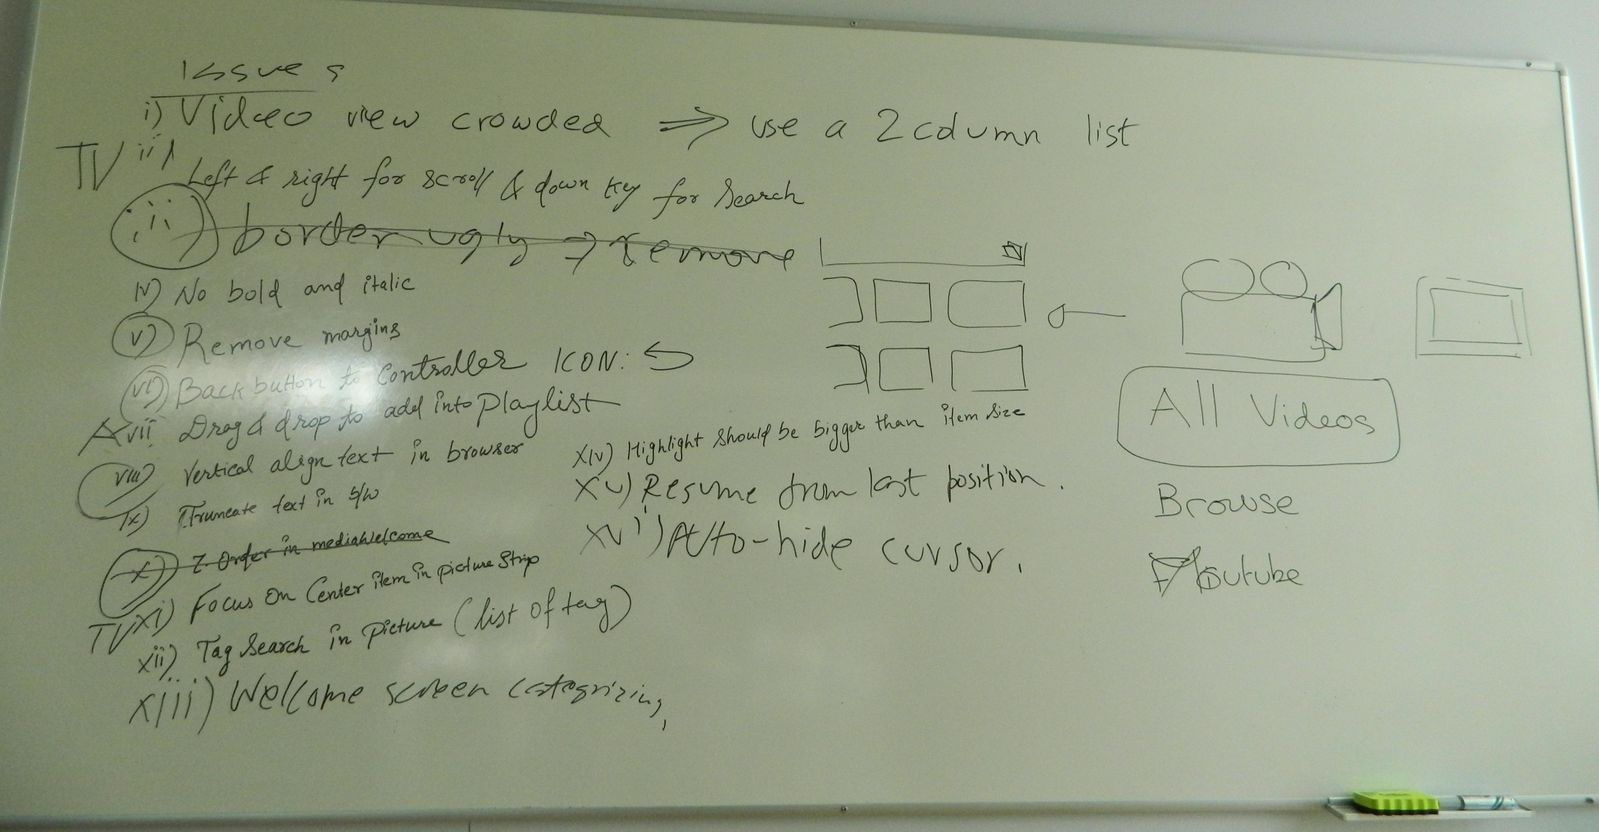 Issues
i) Video view crowded ⇒ use a 2 column list
TV ii) Left & right for scroll & down key for search
iii) border ugly → remove
iv) No bold and italic
v) Remove margins
vi) Back button to controller ICON:
A vii Drag & drop to add into playlist
viii) Vertical align text in browser
ix) Truncate text in S/W
x) Z Order in mediaWelcome
TV xi) Focus on Center item in picture Strip
xii) Tag Search in picture (list of tag)
xiii) Welcome screen categorizing
xiv) Highlight should be bigger than item size
xv) Resume from last position.
xvi) Auto-hide cursor.
All Videos
Browse
Youtube